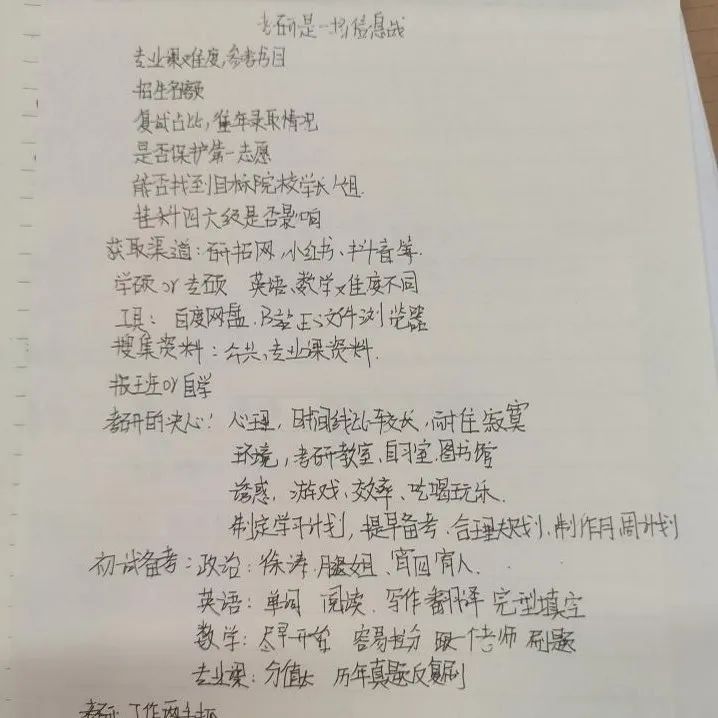 考研是一场信息战
专业课难度,参考书目
招生名额
复试占比,往年录取情况
是否保护第一志愿
能否找到目标院校学长/姐
挂科四六级是否影响
获取渠道:研招网,小红书、抖音等.
学硕 or 专硕 英语、数学难度不同
工具: 百度网盘.B站 ES文件浏览器
搜集资料:公共、专业课资料.
报班 or 自学
考研的决心: 心理,时间线比较长,耐住寂寞
环境,考研教室、自习室.图书馆
诱惑,游戏、效率、吃喝玩乐.
制定学习计划,提早备考、合理规划、制作月周计划
初试备考:政治:徐涛.腿姐、肖四肖八.
英语:单词 阅读.写作 翻译 完型填空
数学:尽早开始 容易拉分 跟一个老师 刷题
专业课:分值大 历年真题反复刷
考研、工作两手抓